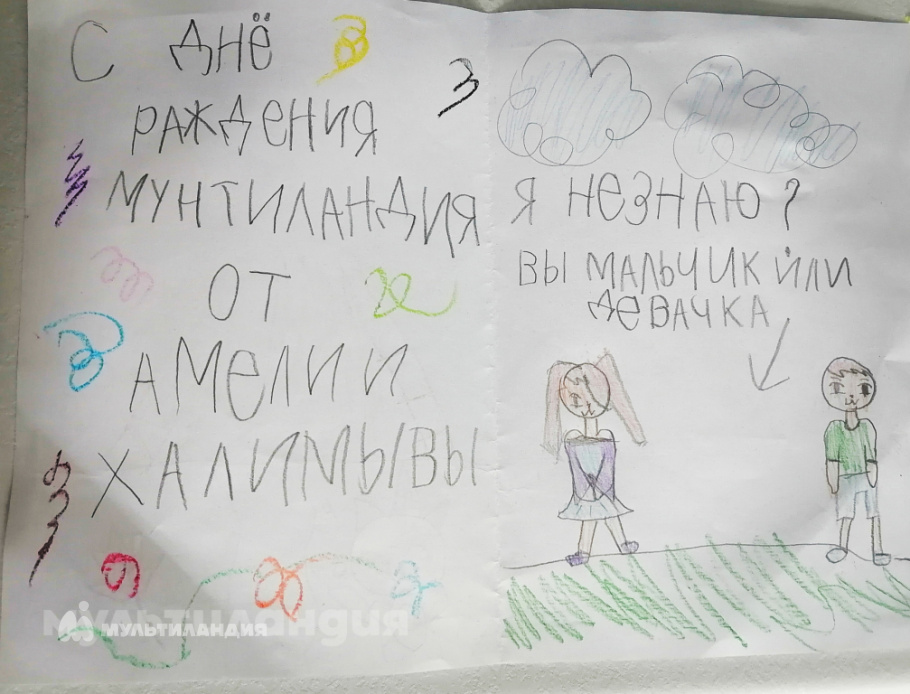 С ДНЁ
РАЖДЕНИЯ
МУНТИЛАНДИЯ
ОТ
АМЕЛИИ
ХАЛИМЫВЫ
Я НЕЗНАЮ?
ВЫ МАЛЬЧИК ЙЛИ
ДЕВАЧКА
МУЛЬТИЛАНДИЯ
мультиландия